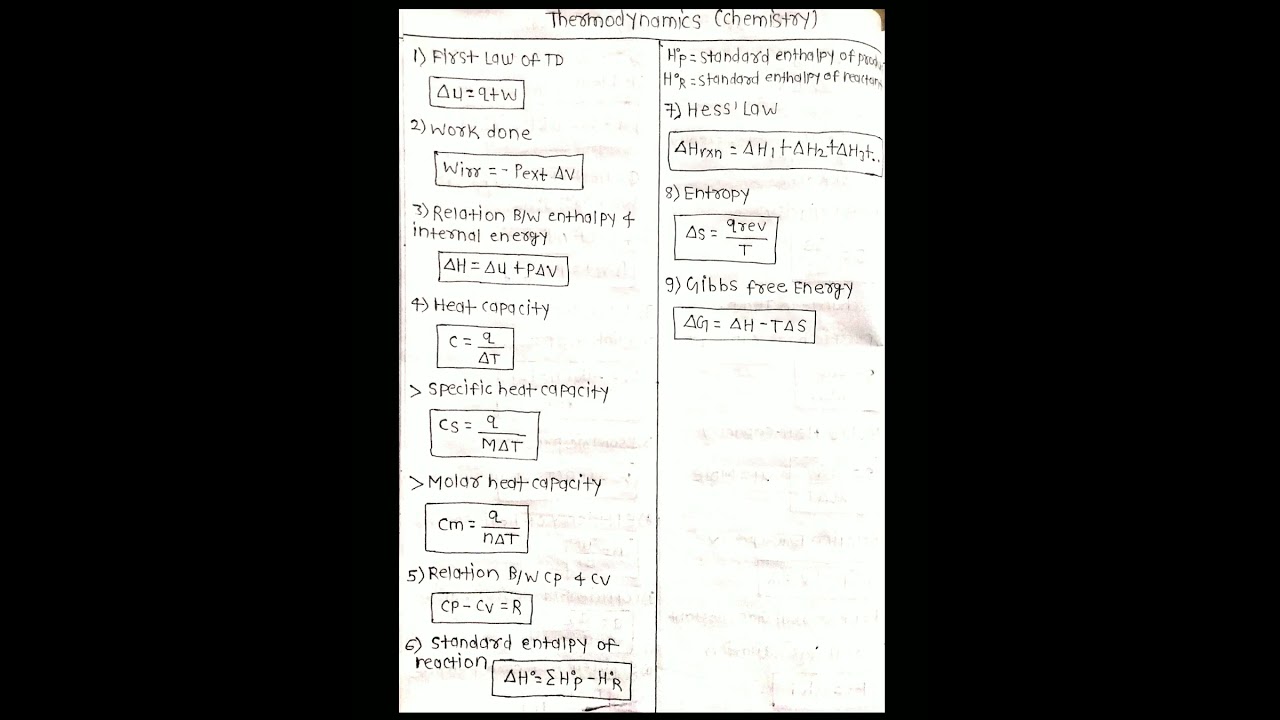 Thermodynamics (Chemistry)
1) First Law of TD
ΔU = q+W
2) Work done
Wirr = - Pext ΔV
3) Relation B/W enthalpy &
internal energy
ΔH = ΔU + PΔV
4) Heat capacity
C = q/ΔT
> Specific heat capacity
Cs = q/MΔT
> Molar heat capacity
Cm = q/nΔT
5) Relation B/W Cp & Cv
Cp - Cv = R
6) Standard entalpy of
reaction
ΔH° = Σ H°P - H°R
H°P = Standard enthalpy of produ
H°R = Standard enthalpy of reactan
7) Hess' Law
ΔHrxn = ΔH1 + ΔH2 + ΔH3 + ..
8) Entropy
ΔS = qrev/T
9) Gibbs free Energy
ΔG = ΔH - TΔS